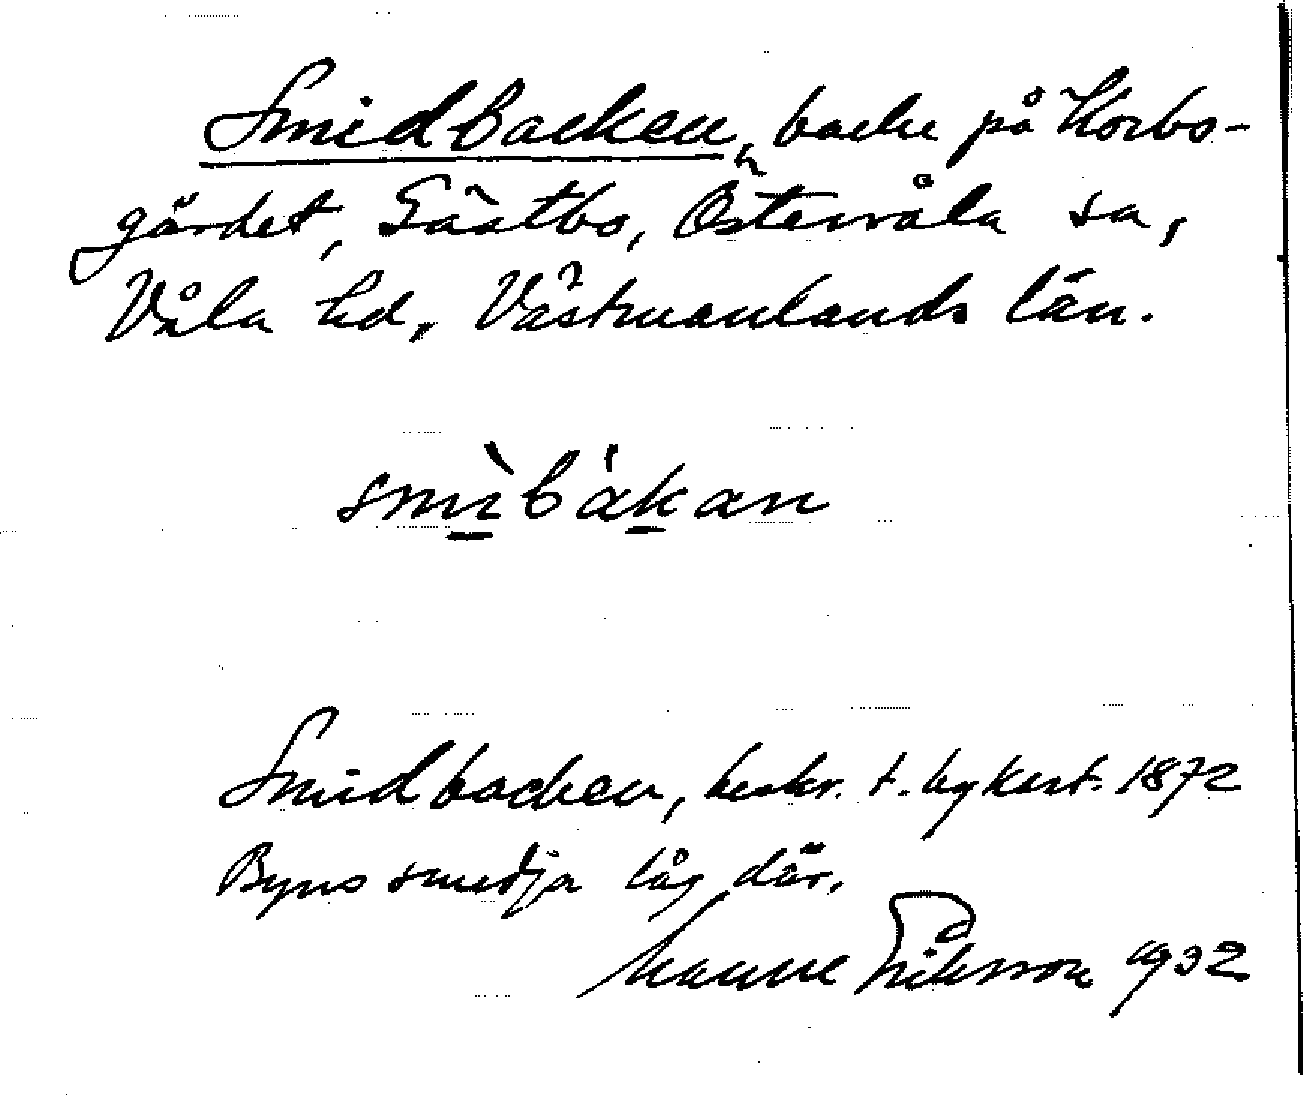 Smidbacken, backe på Korbo-
gärdet, Gästbo, Östervåla sn,
Våla hd, Västmanlands län.
smìbákan
Smidbacken, beskr. t. bykart. 1872
Byns smedja låg där.
Manne Eriksson 1932